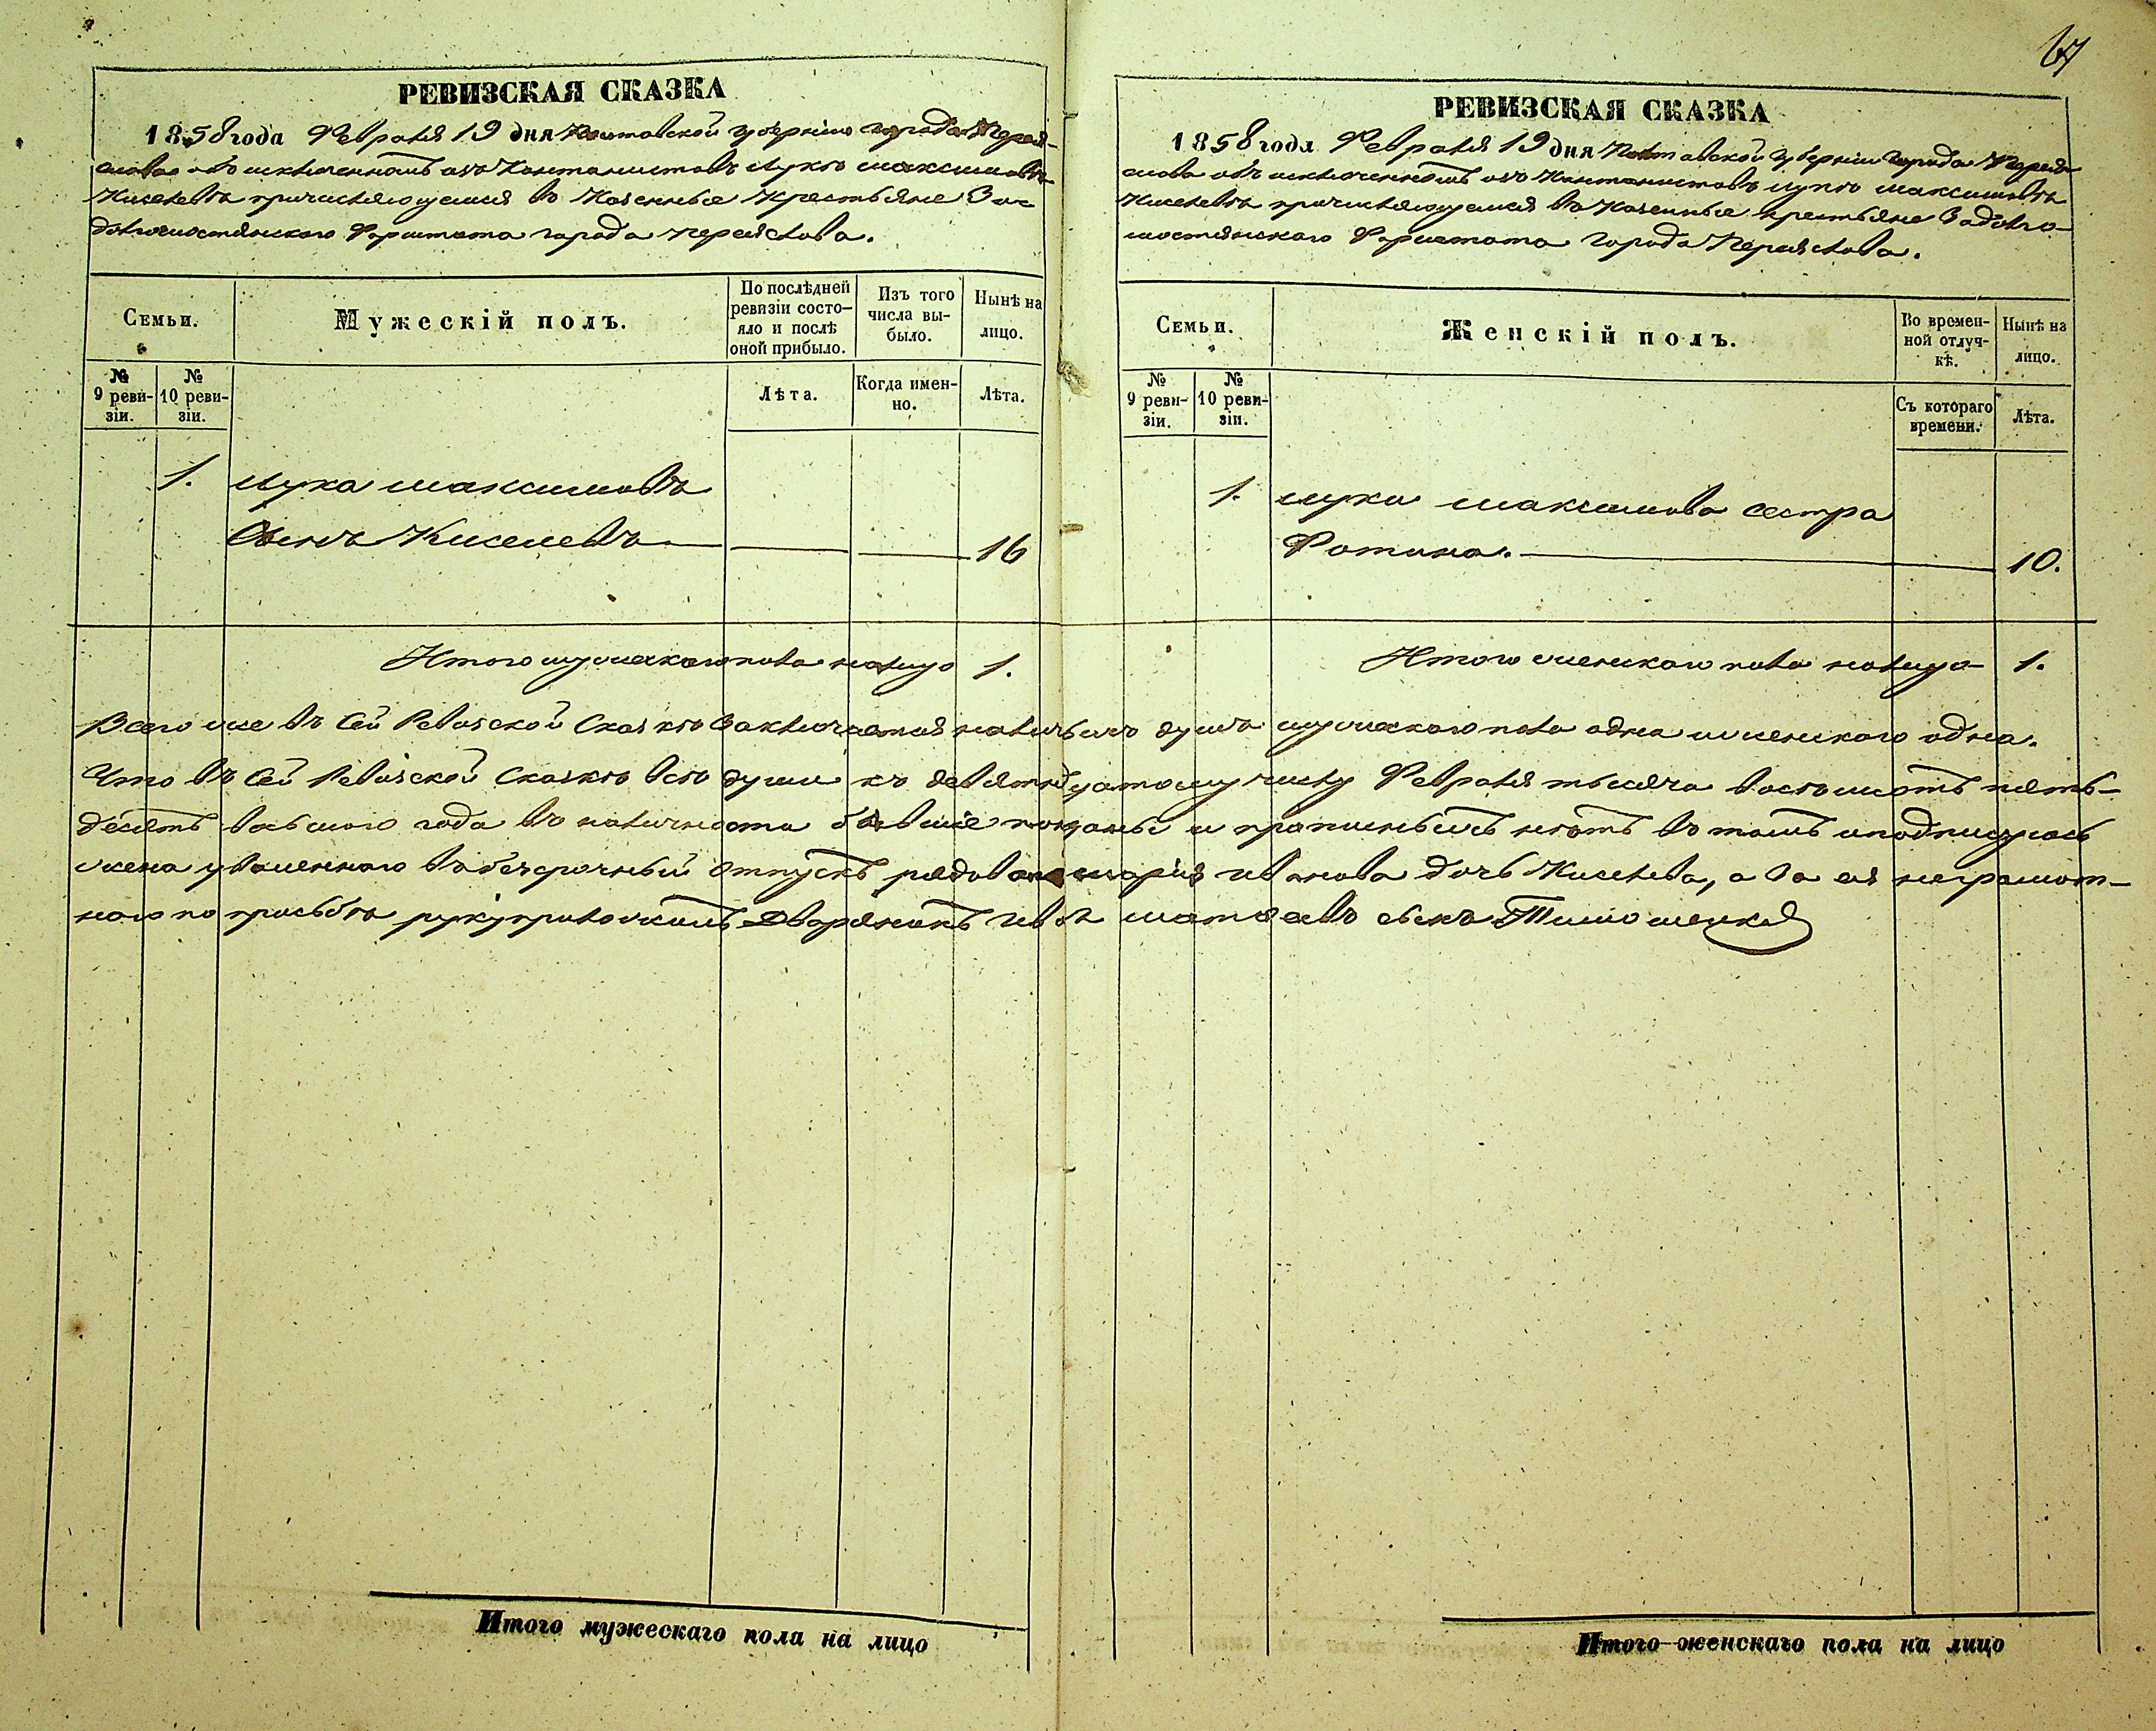 67
РЕВИЗСКАЯ СКАЗКА
1858 года Февраля 19 дня Полтавской губерніи города Перея-
слова объ исключенномъ изъ Кантонистовъ Луке Максимовѣ
Киселевѣ причисляющемся въ Казенные Крестьяне За-
долгомостянского Форштата города Переяслова.
Семьи.
Мужескій полъ.
По послѣдней ревизіи состо-
яло и послѣ оной прибыло.
Изъ того числа вы-
было.
Нынѣ на лицо.
№ 9 реви-
зіи.
№ 10 реви-
зіи.
Лѣта.
Когда имен-
но.
Лѣта.
1. Лука Максимовъ
Сынъ Киселевъ 16
Итого мужескаго пола налицо 1.
РЕВИЗСКАЯ СКАЗКА
1858 года Февраля 19 дня Полтавской губерніи города Перея-
слова объ исключенномъ изъ Кантонистовъ Луке Максимовѣ
Киселевѣ причисляющемся въ Казенные крестьяне Задолго-
мостянского Форштата города Переяслова.
Семьи.
Женскій полъ.
Во времен-
ной отлуч-
кѣ.
Нынѣ на лицо.
№ 9 реви-
зіи.
№ 10 реви-
зіи.
Съ котораго времени.
Лѣта.
1. Луки Максимова сестра
Фотина. 10.
Итого женскаго пола налицо 1.
Всего же въ Сей Ревизской Сказкѣ Заключается наличныхъ душъ мужескаго пола одна и женскаго одна.
Что въ Сей Ревизской Сказкѣ всѣ души къ девятнадцатому числу Февраля тысяча восѣмъсотъ пять-
десятъ восьмого года въ наличности бывшіе показаны и прописныхъ нѣтъ въ томъ и подписуюсь
жена уволеннаго въ безсрочный отпускъ рядового Марія Иванова дочь Киселева, а За ея неграмот-
ного по просьбѣ руку приложилъ дворянинъ Матвеевъ сынъ Тимошенко
Итого мужескаго пола на лицо
Итого женскаго пола на лицо